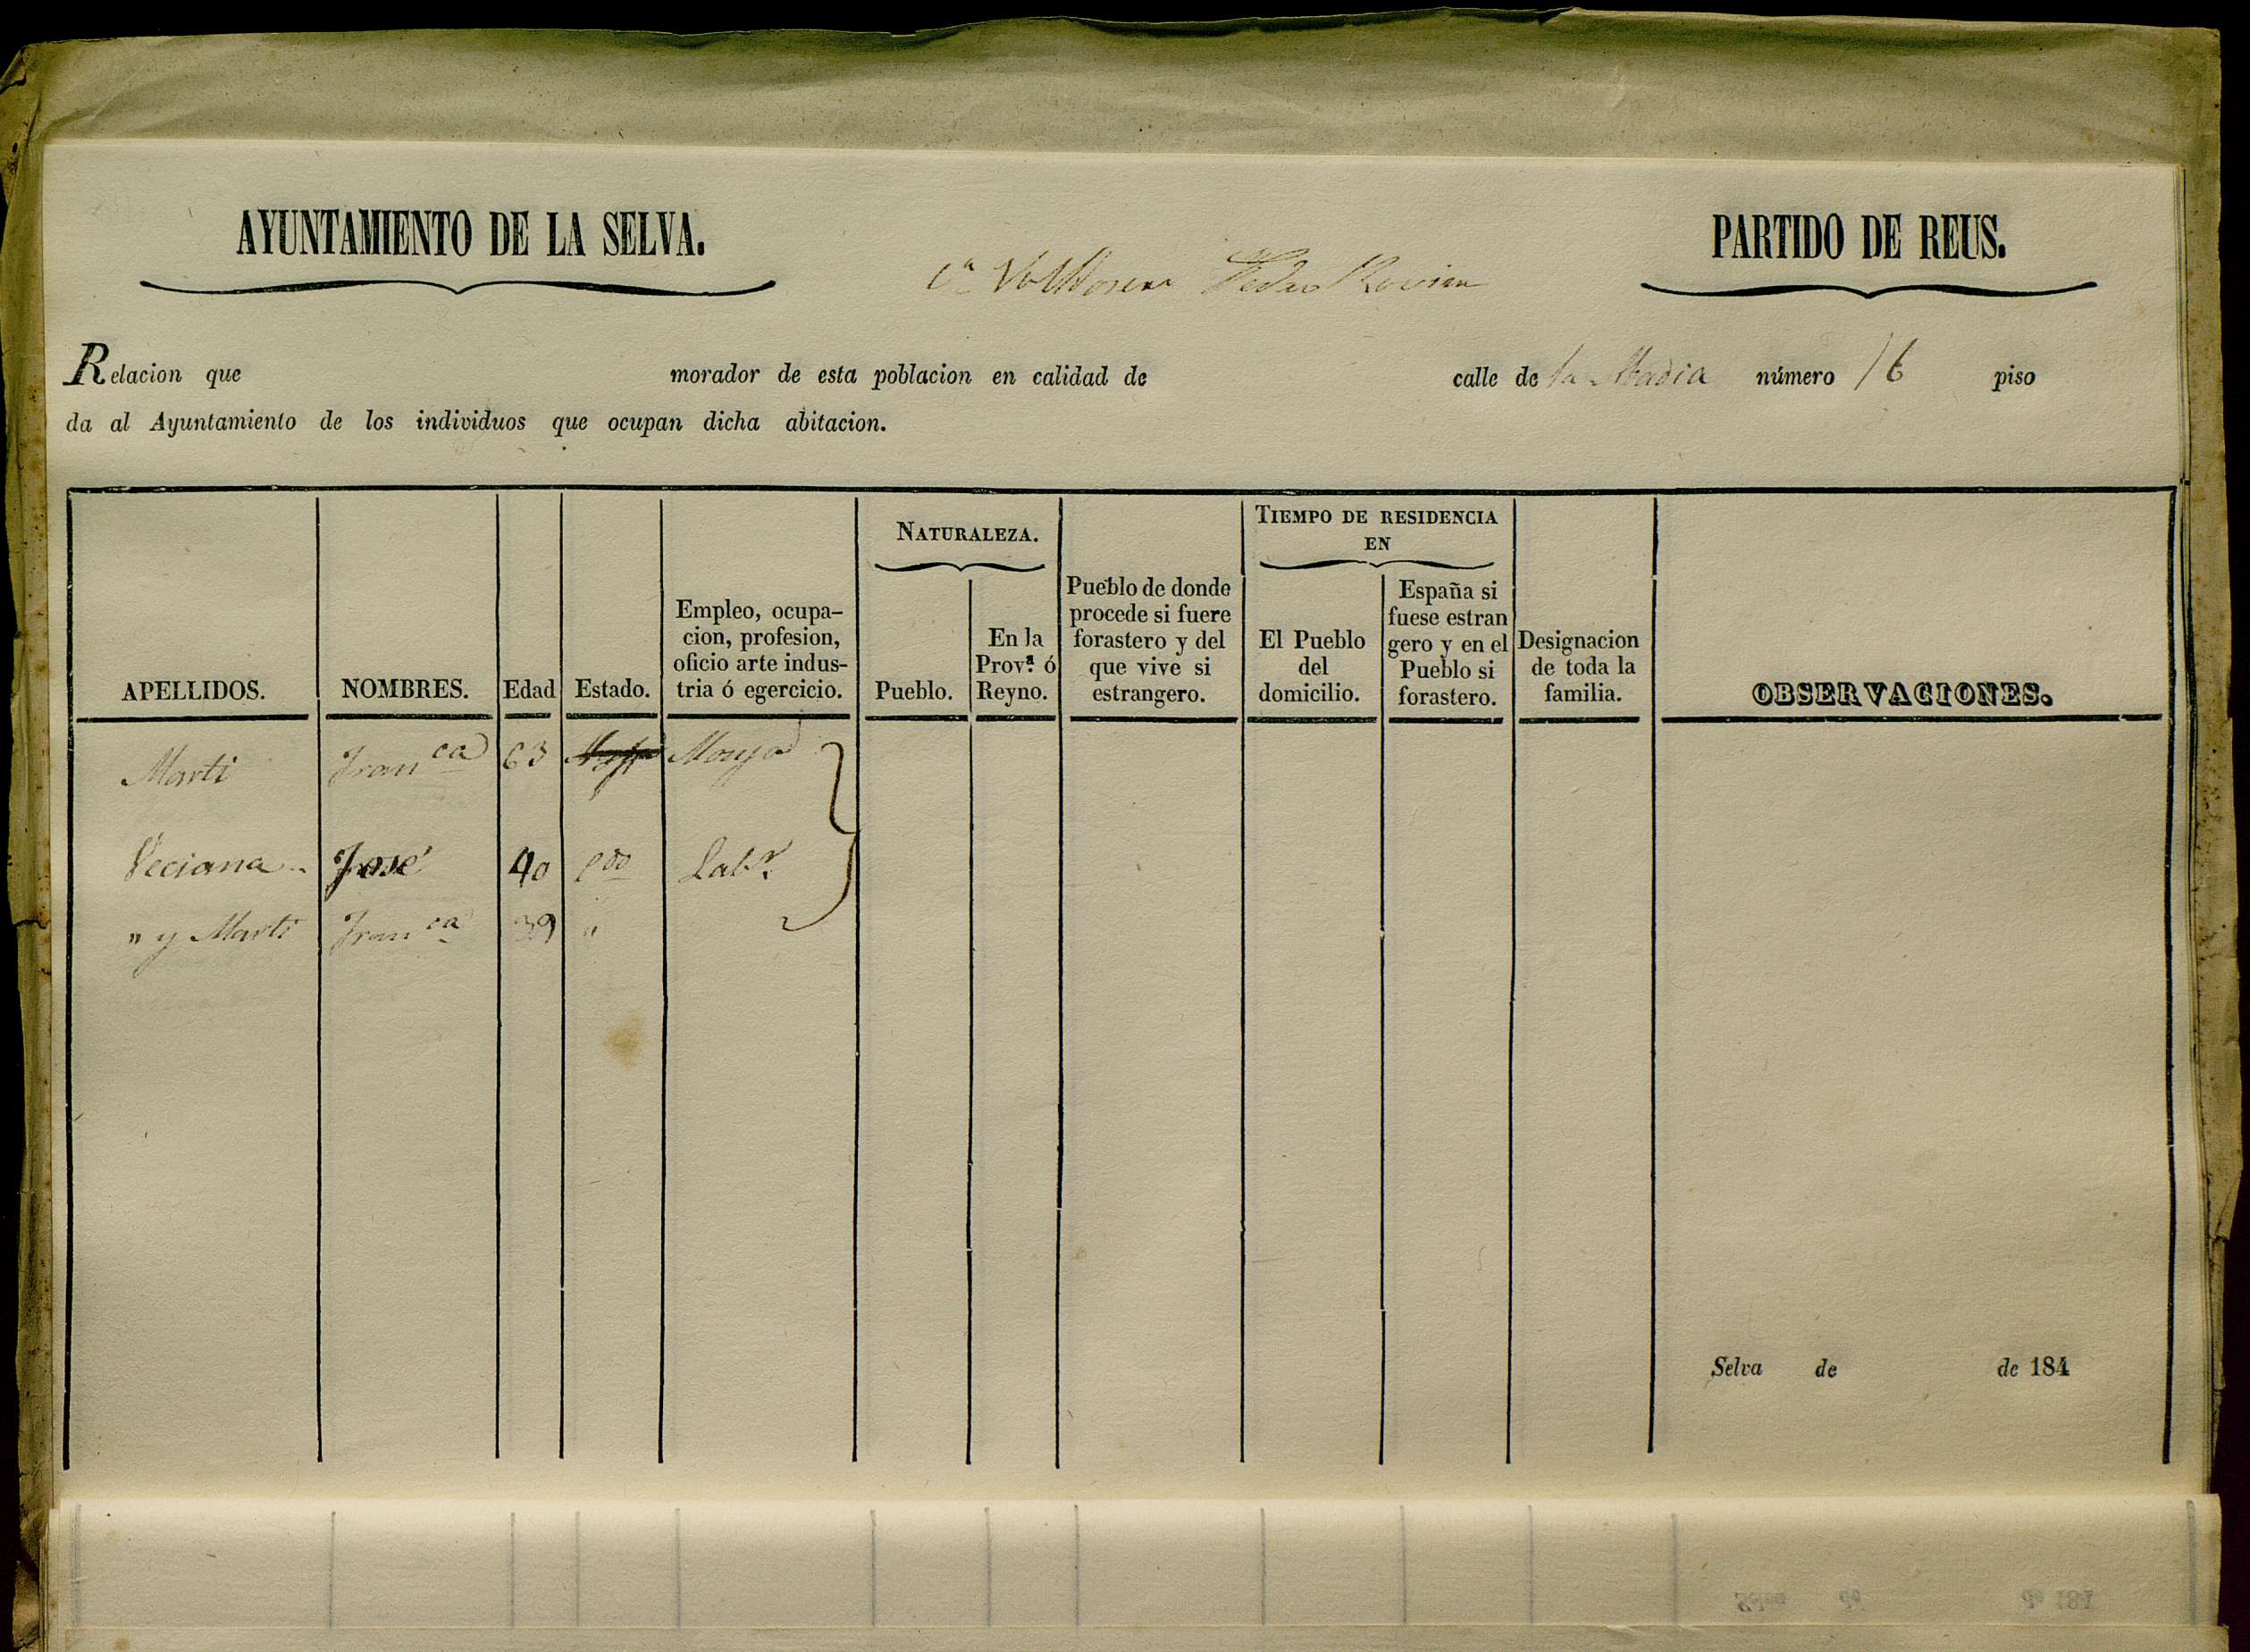 AYUNTAMIENTO DE LA SELVA.
PARTIDO DE REUS.
Relacion que morador de esta poblacion en calidad de calle de la Abadia número 16 piso
da al Ayuntamiento de los individuos que ocupan dicha abitacion.
APELLIDOS.
NOMBRES.
Edad
Estado.
Empleo, ocupa-
cion, profesion,
oficio arte indus-
tria ó egercicio.
NATURALEZA.
Pueblo.
En la
Prov.ª ó
Reyno.
Pueblo de donde
procede si fuere
forastero y del
que vive si
estrangero.
TIEMPO DE RESIDENCIA
EN
El Pueblo
del
domicilio.
España si
fuese estran
gero y en el
Pueblo si
forastero.
Designacion
de toda la
familia.
OBSERVACIONES.
Marti Fran ca 63 Monja
Veciana José 40 cdo Labr.
" y Marti Fran ca 39 "
Selva de de 184